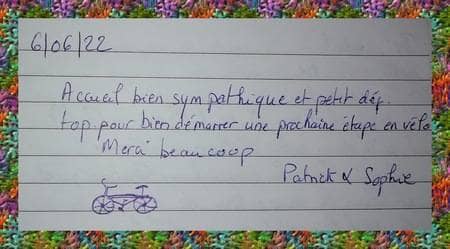 6/06/22
Accueil bien sympathique et petit déj.
top pour bien démarrer une prochaine étape en vélo
Merci beaucoup
Patrick & Sophie